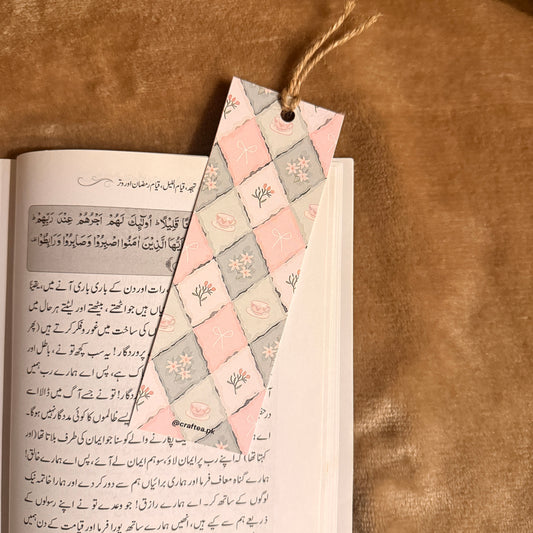 تہجد، قیام اللیل، قیام رمضان اور وتر
قَلِيْلًا ؕ اُولٰٓئِكَ لَهُمْ اَجْرُهُمْ عِنْدَ رَبِّهِمْ ؕ
الَّذِيْنَ اٰمَنُوا اصْبِرُوْا وَصَابِرُوْا وَرَابِطُوْا
رات اور دن کے باری باری آنے میں، یقیناً
ہیں جو اٹھتے، بیٹھتے اور لیٹتے ہر حال میں
کی ساخت میں غور و فکر کرتے ہیں (پھر
پروردگار! یہ سب کچھ تو نے، باطل اور
ہے، پس اے ہمارے رب ہم
تو نے جسے آگ میں ڈالا اسے
ایسے ظالموں کا کوئی مددگار نہیں ہوگا۔
پکارنے والے کو سنا جو ایمان کی طرف بلاتا تھا (اور
کہتا تھا) کہ اپنے رب پر ایمان لاؤ، سو ہم ایمان لے آئے، پس اے ہمارے رب!
ہمارے گناہ معاف فرما اور ہماری برائیاں ہم سے دور کر دے اور ہمارا خاتمہ نیک
لوگوں کے ساتھ کر۔ اے ہمارے رازق! جو وعدے تو نے اپنے رسولوں کے
ذریعے ہم سے کیے ہیں، انھیں ہمارے ساتھ پورا فرما اور قیامت کے دن ہمیں
@craftea.pk